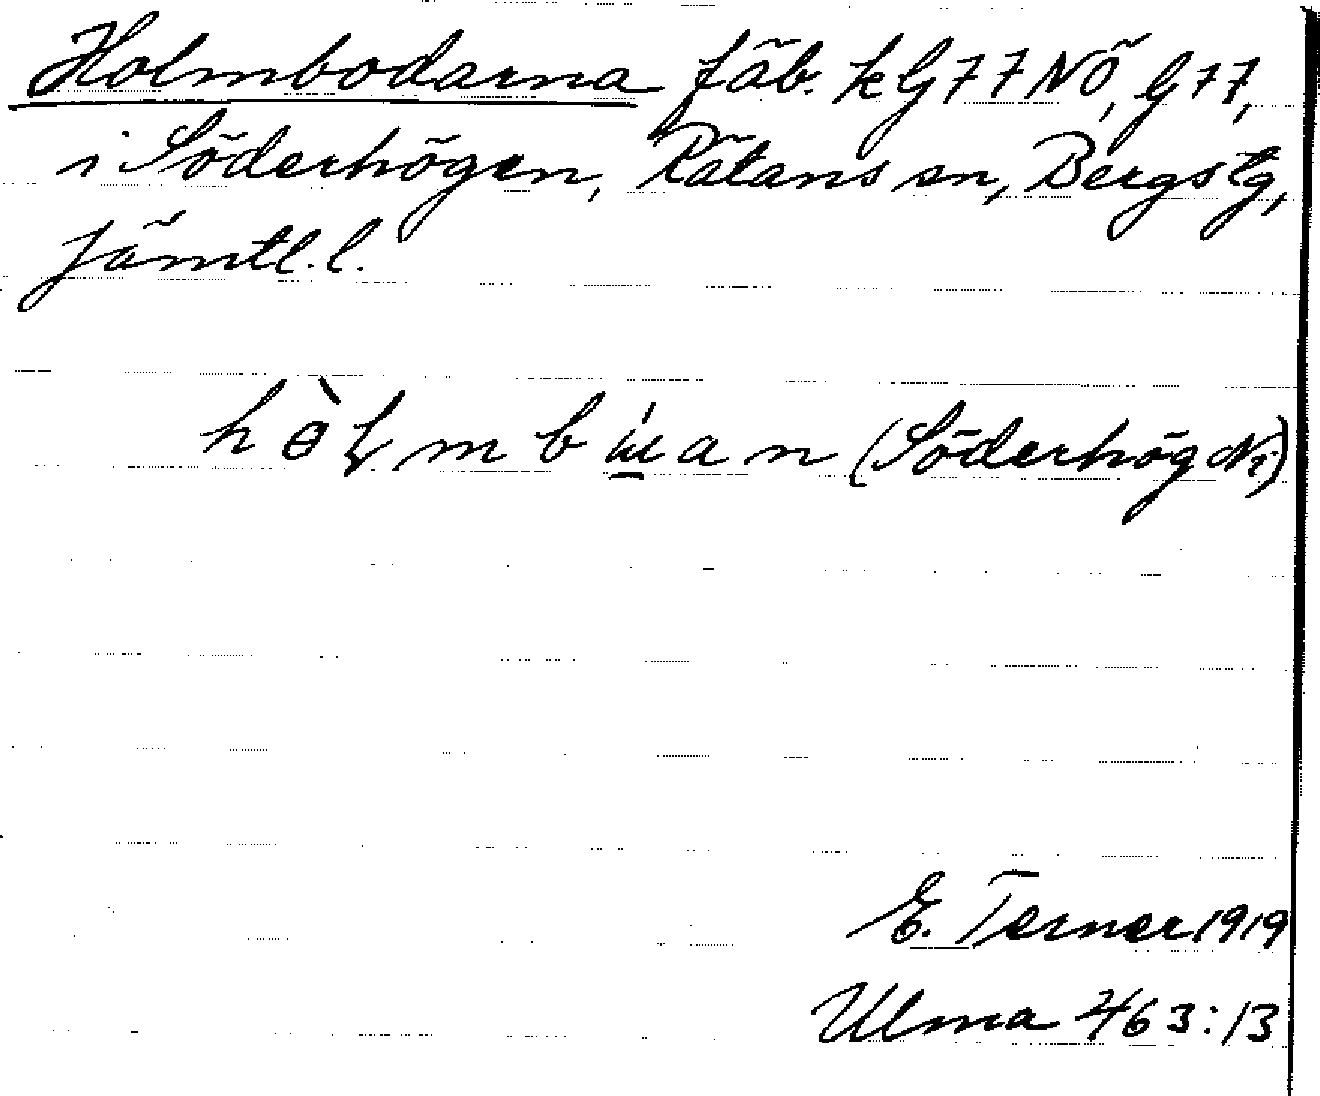 Holmbodarna fäb. k G77NÖ, G77,
i Söderhögen, Rätans sn, Bergs tg,
Jämtl. l.
(Söderhög
E. Terner 1919
Ulma 463:13